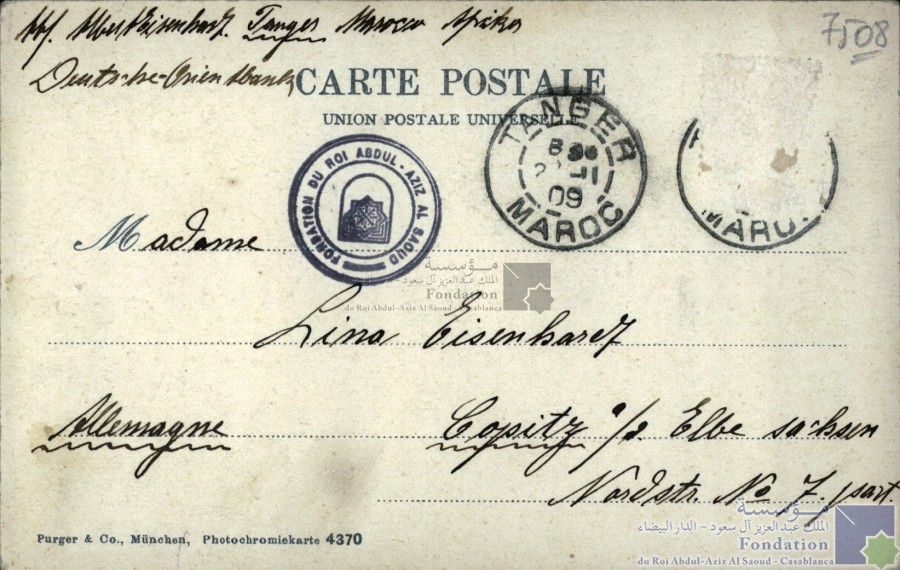 Abs. Albert Eisenhardt. Tanger Marocco Afrika
Deutsche-Orientbank,
7508
CARTE POSTALE
UNION POSTALE UNIVERSELLE
TANGER
09
MAROC
MAROC
FONDATION DU ROI ABDUL-AZIZ AL SAOUD
Madame
مؤسسة
الملك عبد العزيز آل سعود -
Fondation
du Roi Abdul-Aziz Al Saoud - Casablanca
Lina Eisenhardt
Allemagne
Copitz a/d Elbe Sachsen
Nordstr. No 7. part.
Purger & Co., München, Photochromiekarte 4370
مؤسسة
الملك عبد العزيز آل سعود - الدار البيضاء
Fondation
du Roi Abdul-Aziz Al Saoud - Casablanca